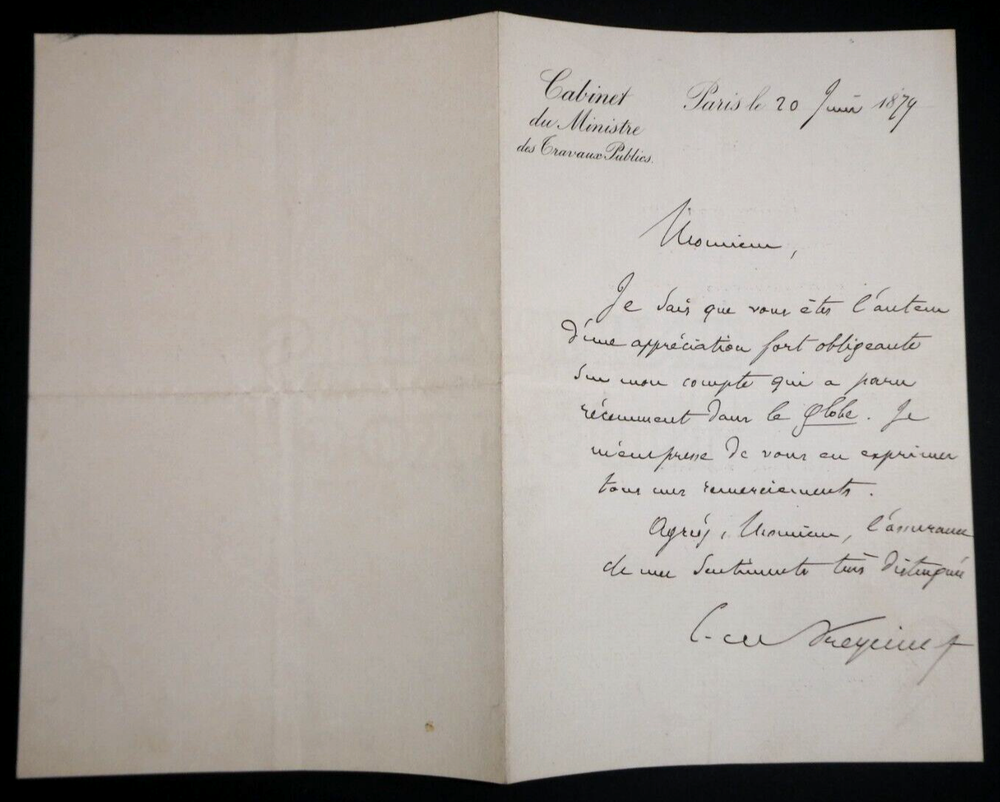 Cabinet
du Ministre
des Travaux Publics.
Paris le 20 Juin 1879
Monsieur,
Je sais que vous êtes l'auteur
d'une appréciation fort obligeante
sur mon compte qui a paru
récemment dans le Globe. Je
m'empresse de vous en exprimer
tous mes remerciements.
Agréez, Monsieur, l'assurance
de mes sentiments très distingués
C. de Freycinet